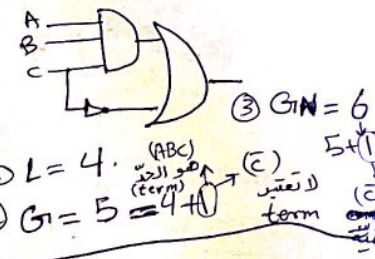 A
B
C
③ GN = 6
5+①
L = 4.
(ABC)
هو الحدّ
(term)
(C̅)
لا تعتبر
term
G = 5 = 4+①
(C̅)